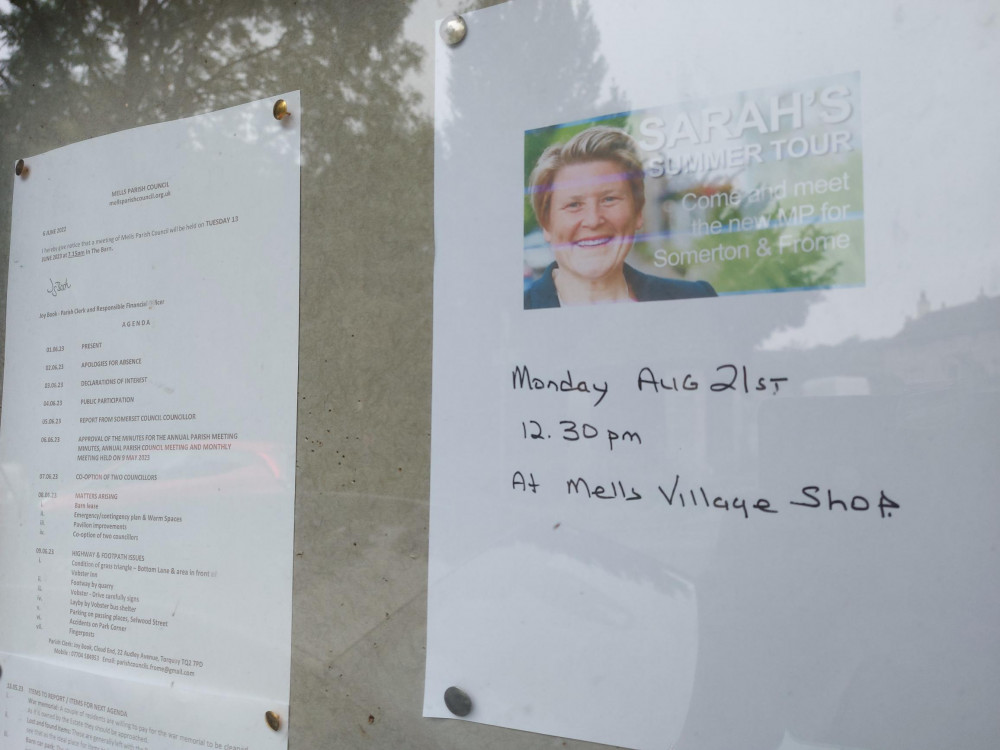 MELLS PARISH COUNCIL
mellsparishcouncil.org.uk
6 JUNE 2023
I hereby give notice that a meeting of Mells Parish Council will be held on TUESDAY 13
JUNE 2023 at 7.15pm In The Barn.
Joy Book - Parish Clerk and Responsible Financial
AGENDA
01.06.23 PRESENT
02.06.23 APOLOGIES FOR ABSENCE
03.06.23 DECLARATIONS OF INTEREST
04.06.23 PUBLIC PARTICIPATION
05.06.23 REPORT FROM SOMERSET COUNCIL COUNCILLOR
06.06.23 APPROVAL OF THE MINUTES FOR THE ANNUAL PARISH MEETING
MINUTES, ANNUAL PARISH COUNCIL MEETING AND MONTHLY
MEETING HELD ON 9 MAY 2023
07.06.23 CO-OPTION OF TWO COUNCILLORS
08.06.23 MATTERS ARISING
i. Barn lease
ii. Emergency/contingency plan & Warm Spaces
iii. Pavilion improvements
iv. Co-option of two councillors
09.06.23 HIGHWAY & FOOTPATH ISSUES
i. Condition of grass triangle - Bottom Lane & area in front of
Vobster Inn
ii. Footway by quarry
iii. Vobster - Drive carefully signs
iv. Layby by Vobster bus shelter
v. Parking on passing places, Selwood Street
vi. Accidents on Park Corner
vii. Fingerposts
Parish Clerk: Joy Book, Cloud End, 22 Audley Avenue, Torquay TQ2 7PD
Mobile: Email: parishcouncils.frome@gmail.com
ITEMS TO REPORT / ITEMS FOR NEXT AGENDA
War memorial: A couple of residents are willing to pay for the war memorial to be cleaned
as if owned by the Estate they should be approached.
Lost and found items: These are generally left with the
SARAH'S
SUMMER TOUR
Come and meet
the new MP for
Somerton & Frome
Monday AUG 21ST
12.30pm
At Mells Village Shop